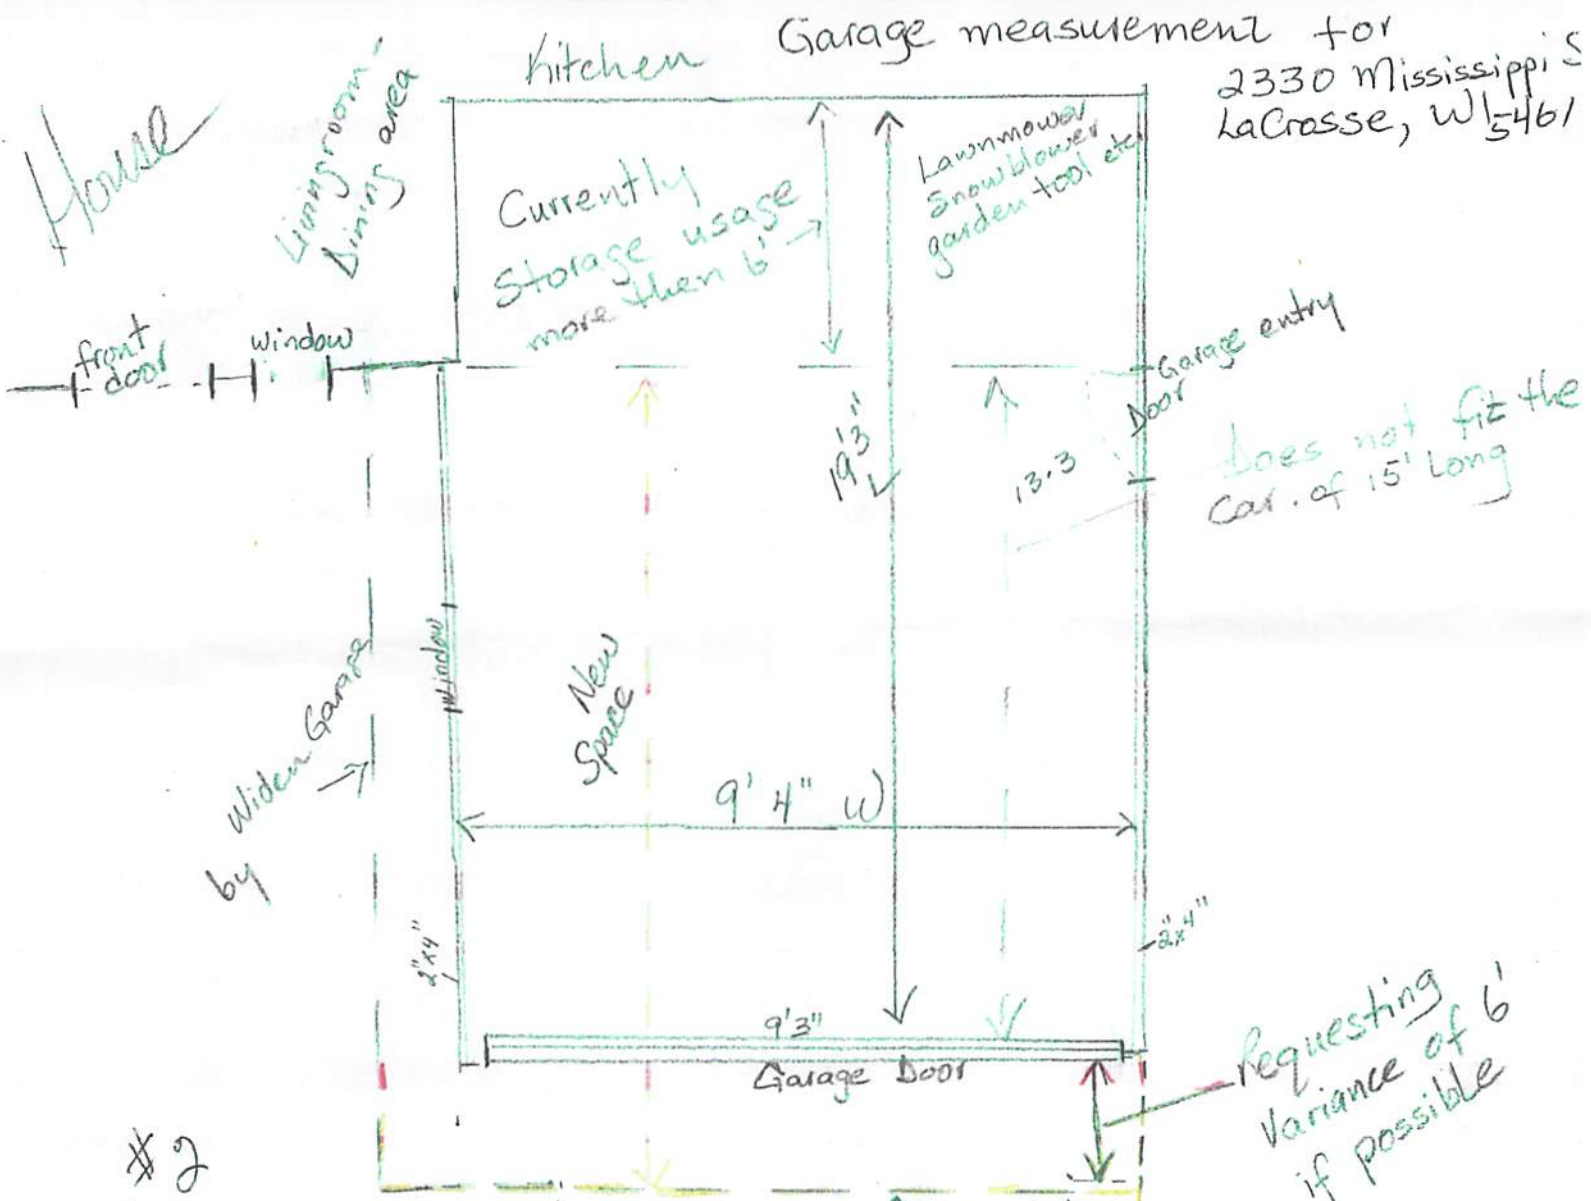 Garage measurement for
2330 Mississippi S
LaCrosse, WI 5461
Kitchen
House
Livingroom-
Dining area
Currently
Storage usage
more then 6'
Lawnmower
Snowblower
garden tool etc
front
door
window
Garage entry
Door
19'3"
13.3
Does not fit the
Car. of 15' Long
Window
New
Space
Widen Garage
by
9' 4" W
2"x4"
2"x4"
9'3"
Garage Door
Requesting
Variance of 6'
if possible
#2